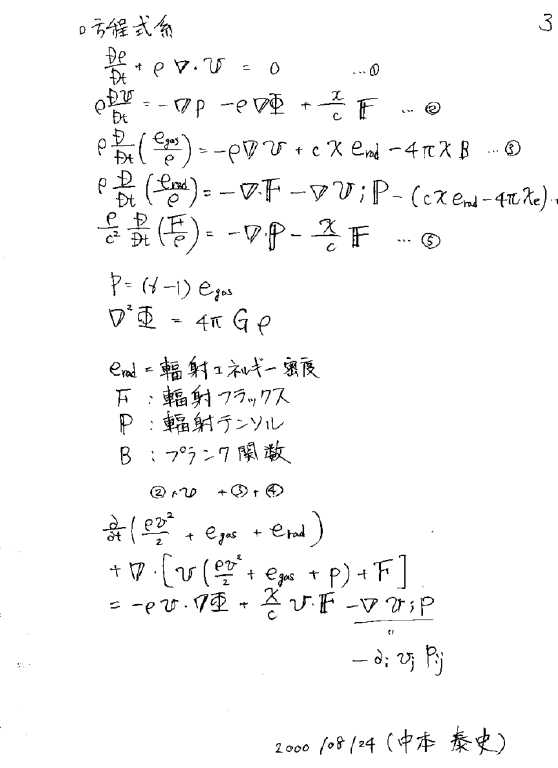 3
○方程式系
Dρ/Dt + ρ∇·v = 0 …①
ρ Dv/Dt = -∇p - ρ∇Φ + χ/c F …②
ρ D/Dt (e_gas/ρ) = -p∇v + cχe_rad - 4πχB …③
ρ D/Dt (e_rad/ρ) = -∇·F - ∇v;P - (cχe_rad - 4πχe)..
ρ/c² D/Dt (F/ρ) = -∇·P - χ/c F …⑤
p = (γ-1) e_gas
∇²Φ = 4πGρ
e_rad = 輻射エネルギー密度
F : 輻射フラックス
P : 輻射テンソル
B : プランク関数
②·v + ③ + ④
∂/∂t (ρv²/2 + e_gas + e_rad)
+ ∇·[v(ρv²/2 + e_gas + p) + F]
= -ρv·∇Φ + χ/c v·F - ∇v;P
"
-∂i vj Pij
2000/08/24 (中本 泰史)